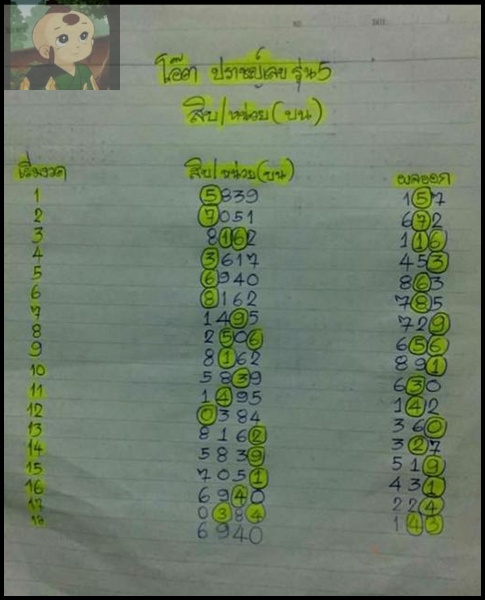 โอ๊ต ปราชญ์เลข รุ่น5
สิบ/หน่วย(บน)
เริ่มงวด สิบ/หน่วย(บน) ผลออก
1 5839 157
2 7051 672
3 8162 116
4 3617 453
5 6940 863
6 8162 785
7 1495 729
8 2506 656
9 8162 891
10 5839 630
11 1495 142
12 0384 360
13 8162 327
14 5839 519
15 7051 431
16 6940 224
17 0384 143
18 6940